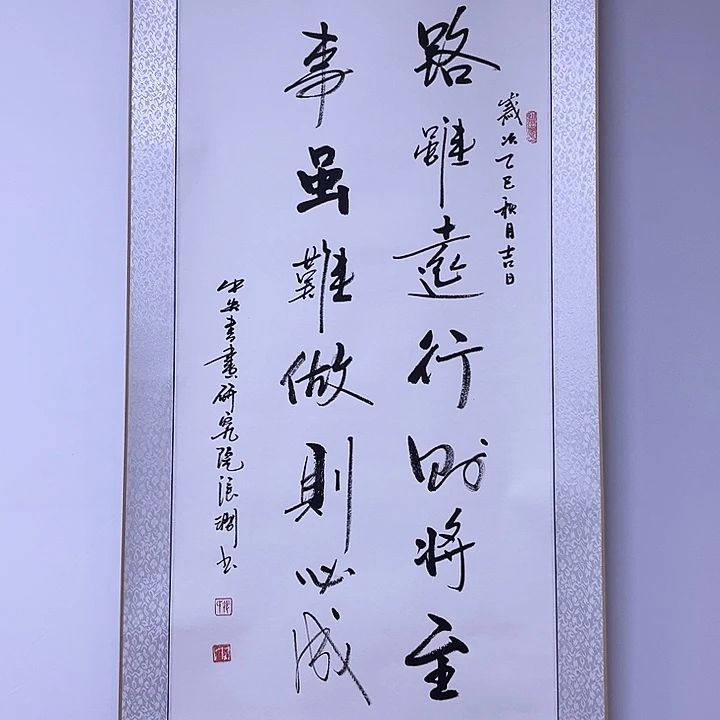 歲次乙巳秋月吉日
路雖遠行則将至
事虽難做則必成
中央書畫研究院
书